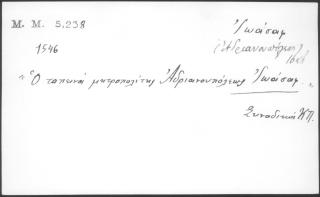 M. M. 5.238
Ἰωάσαφ
(Ἀδριανουπόλεως)
1546
"Ὁ ταπεινὸς μητροπολίτης Ἀδριανουπόλεως Ἰωάσαφ."
Συνοδικὴ ΚΠ.